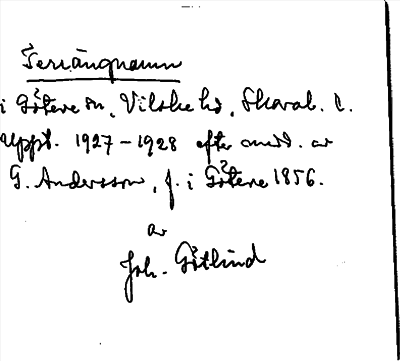 Terrängnamn
i Götene sn, Vilske hd, Skarab. l.
Uppt. 1927-1928 efter medd. av
G. Andersson, f. i Götene 1856.
av
Joh. Götlind